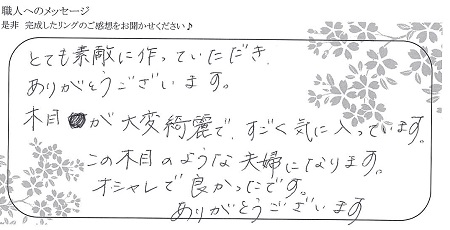 職人へのメッセージ
是非 完成したリングのご感想をお聞かせください♪
とても素敵に作っていただき、
ありがとうございます。
木目が大変綺麗で、すごく気に入っています。
この木目のような夫婦になります。
オシャレで良かったです。
ありがとうございます